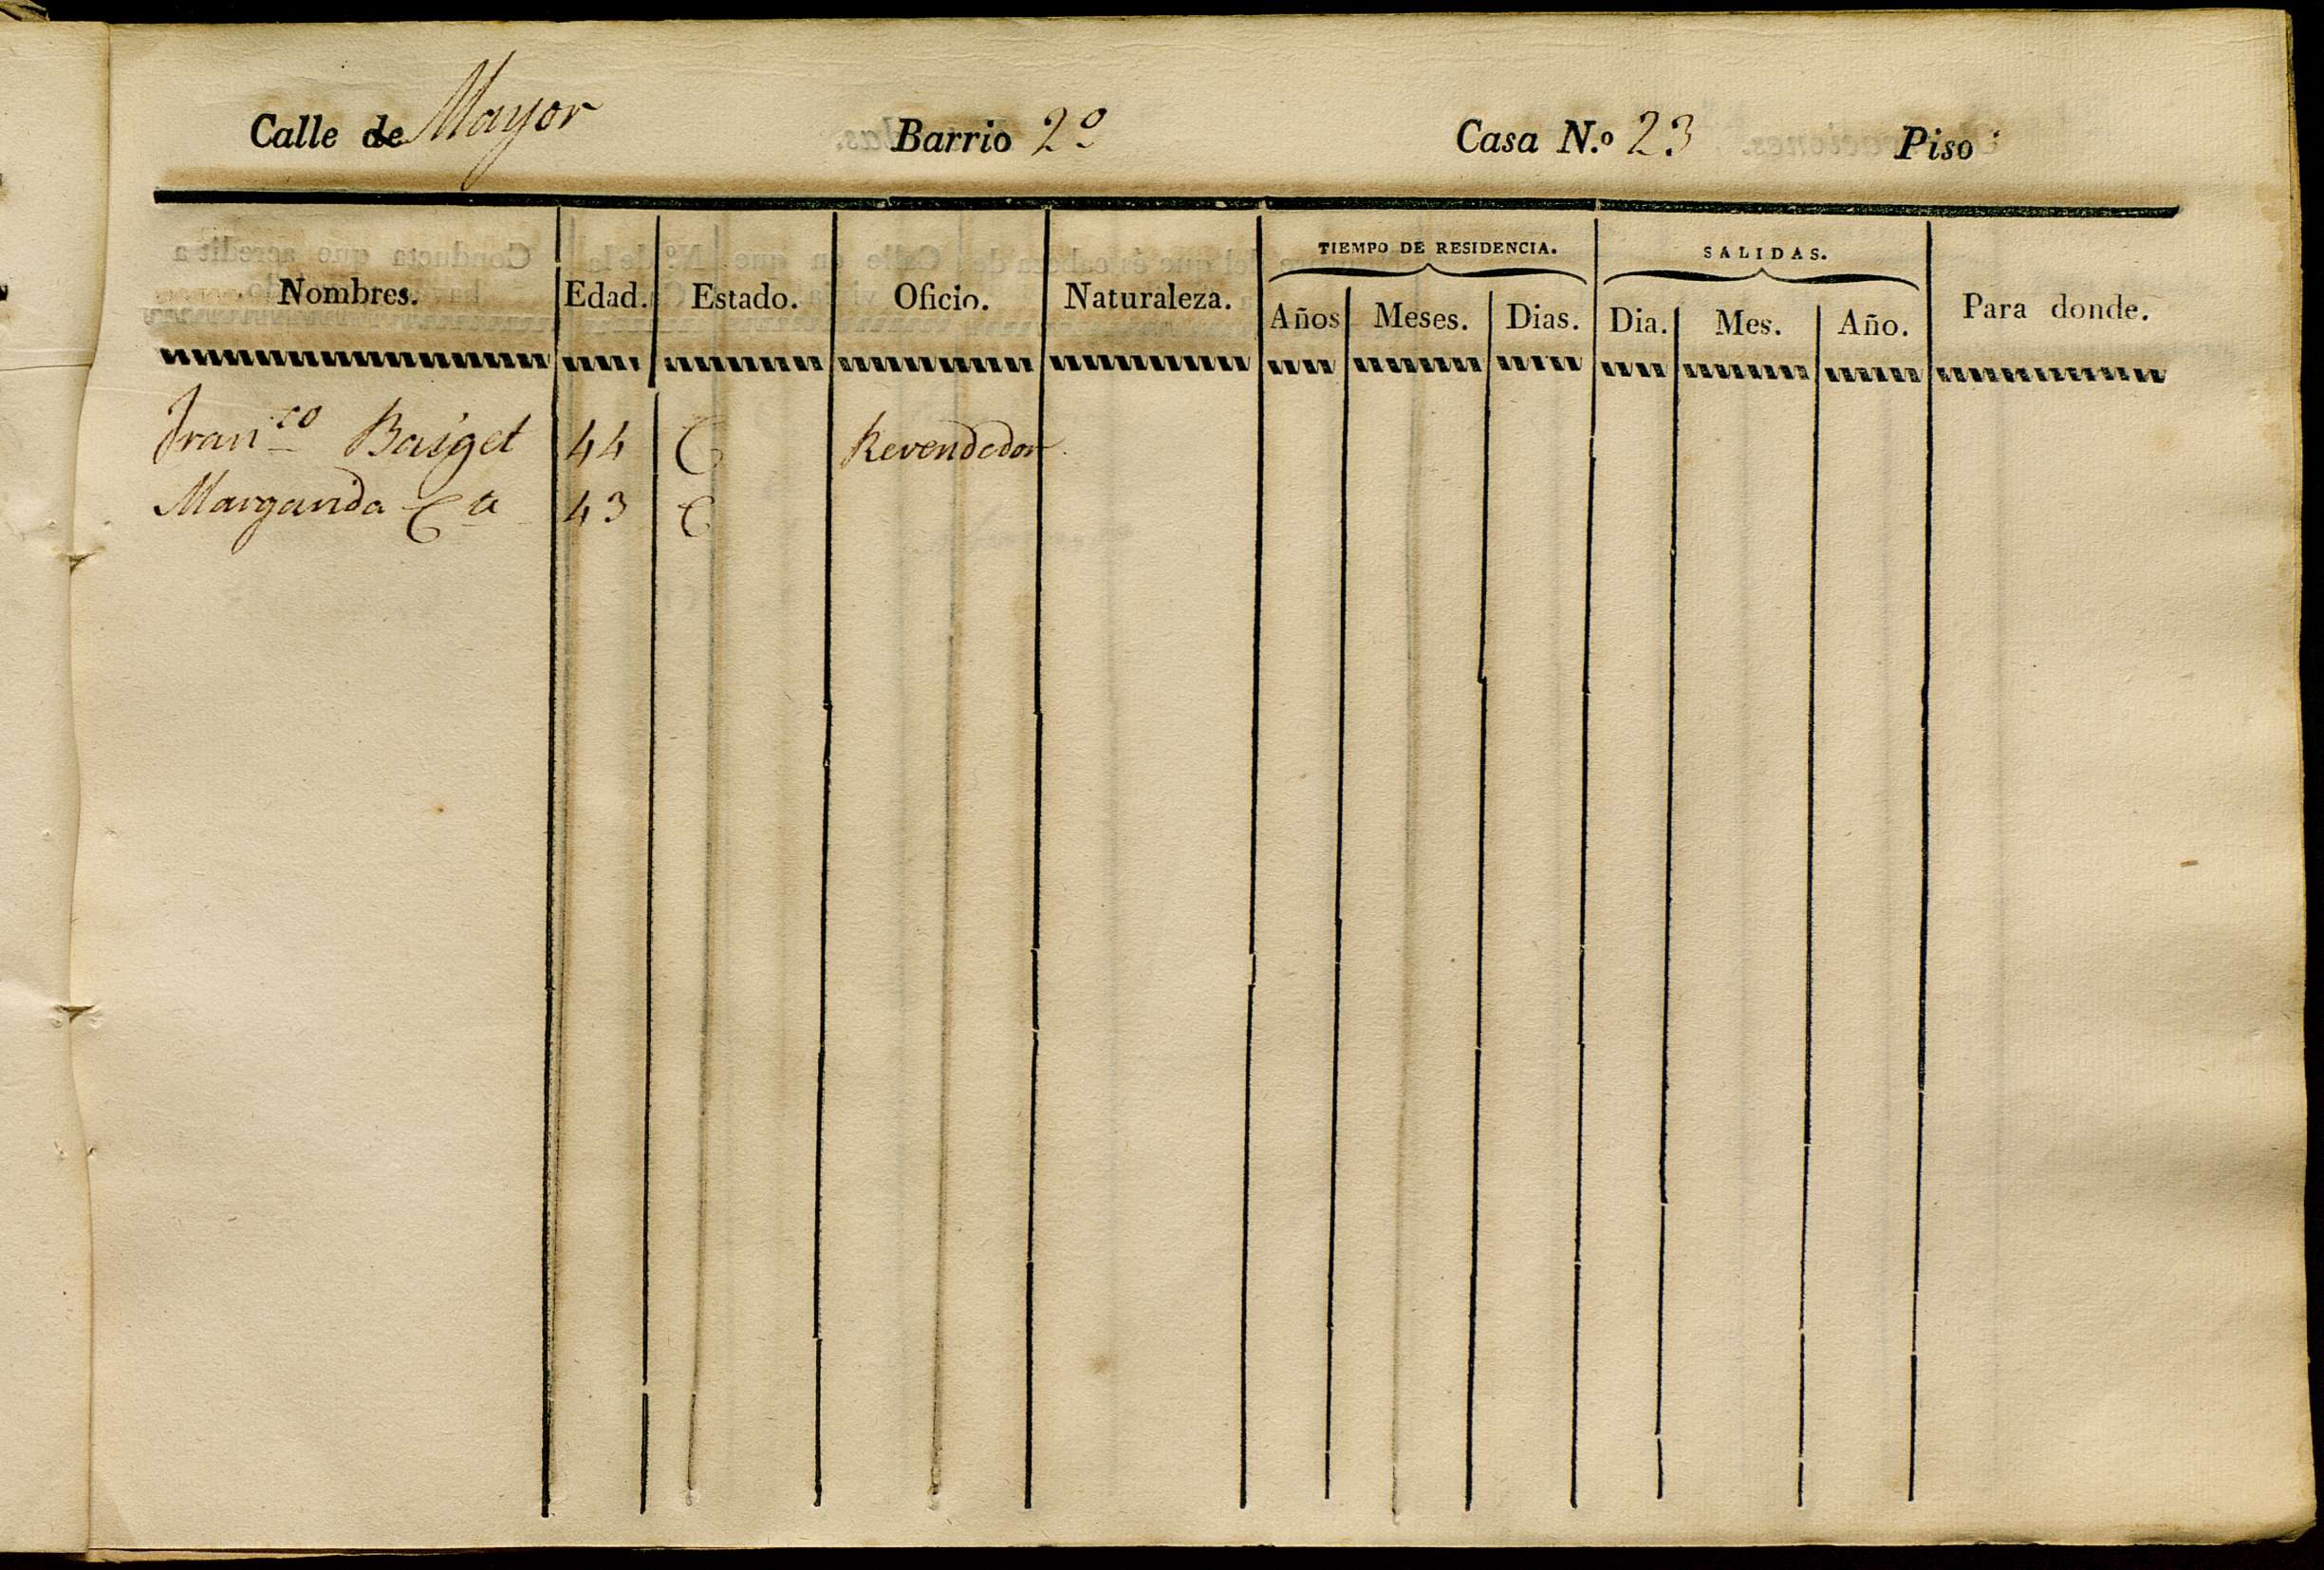 Calle de Mayor Barrio 2º Casa N.º 23 Piso
Nombres. Edad. Estado. Oficio. Naturaleza. TIEMPO DE RESIDENCIA. Años Meses. Dias. SALIDAS. Dia. Mes. Año. Para donde.
Franco Baiget 44 C Revendedor
Margarida Ca 43 C